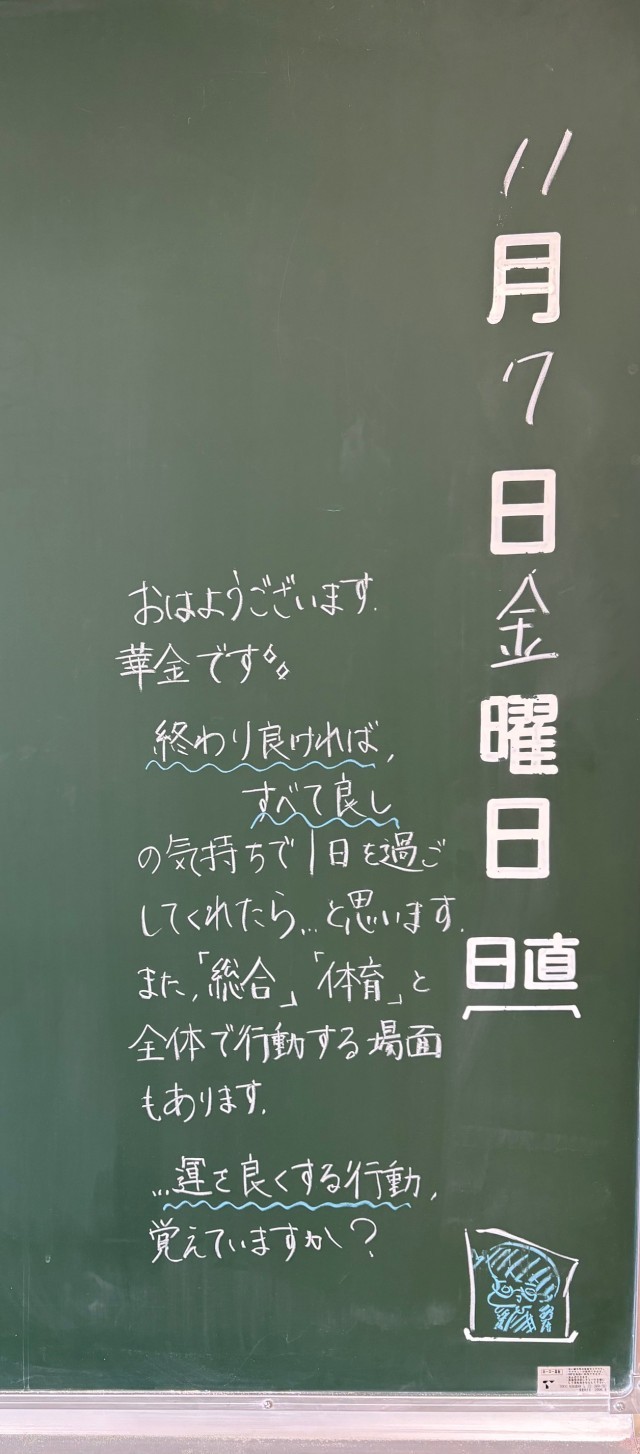 11月7日金曜日
日直
おはようございます.
華金です
終わり良ければ,
すべて良し
の気持ちで1日を過ご
してくれたら...と思います.
また,「総合」「体育」と
全体で行動する場面
もあります.
...運を良くする行動,
覚えていますか?